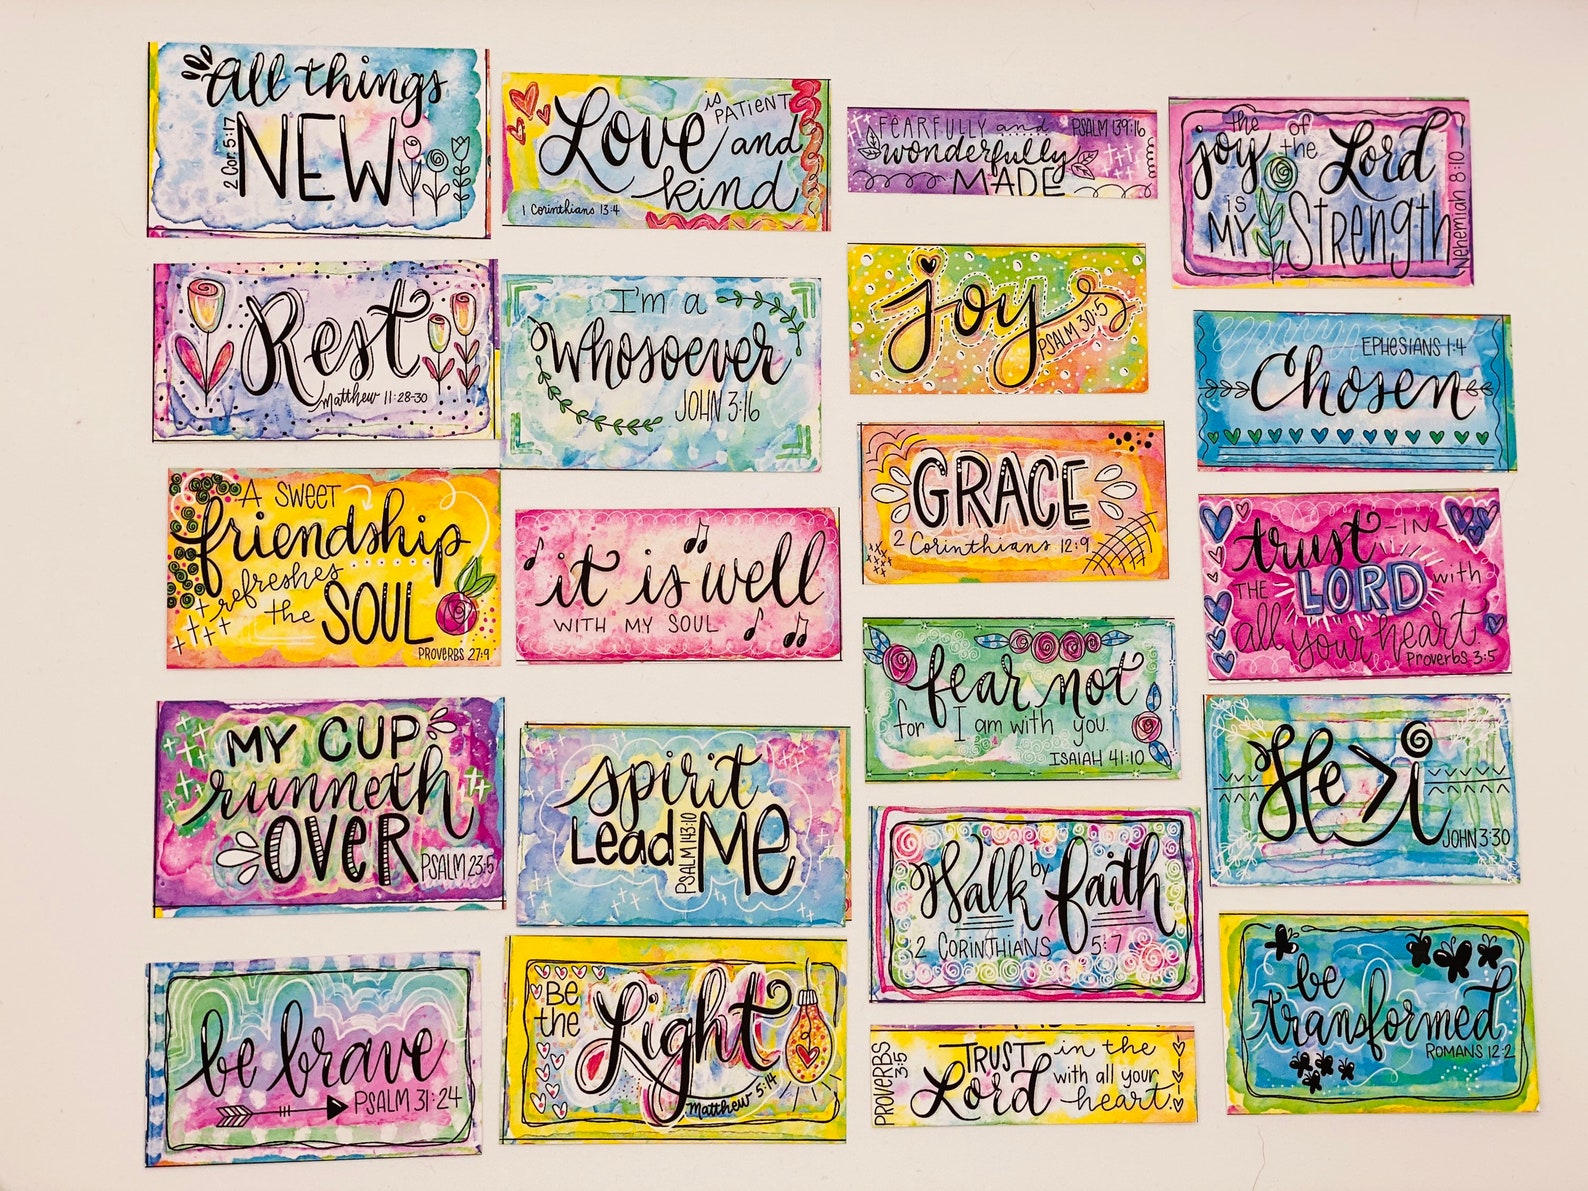 All things
NEW
2 Cor. 5:17
Love is
PATIENT
and
kind
1 Corinthians 13:4
FEARFULLY and
wonderfully
MADE
PSALM 139:16
the joy of the Lord
IS MY STRENGTH
Nehemiah 8:10
Rest
Matthew 11:28-30
I'm a
Whosoever
JOHN 3:16
joy
PSALM 30:5
EPHESIANS 1:4
Chosen
A SWEET
friendship
refreshes
the SOUL
PROVERBS 27:9
it is well
WITH MY SOUL
GRACE
2 Corinthians 12:9
trust IN
THE LORD with
all your heart.
Proverbs 3:5
MY CUP
runneth
OVER
PSALM 23:5
spirit
Lead ME
PSALM 143:10
fear not
for I am with you.
ISAIAH 41:10
He>i
JOHN 3:30
be brave
PSALM 31:24
BE
the Light
Matthew 5:14
Walk by faith
2 CORINTHIANS 5:7
PROVERBS
3:5
TRUST in the
Lord with all your
heart.
be
transformed
ROMANS 12:2